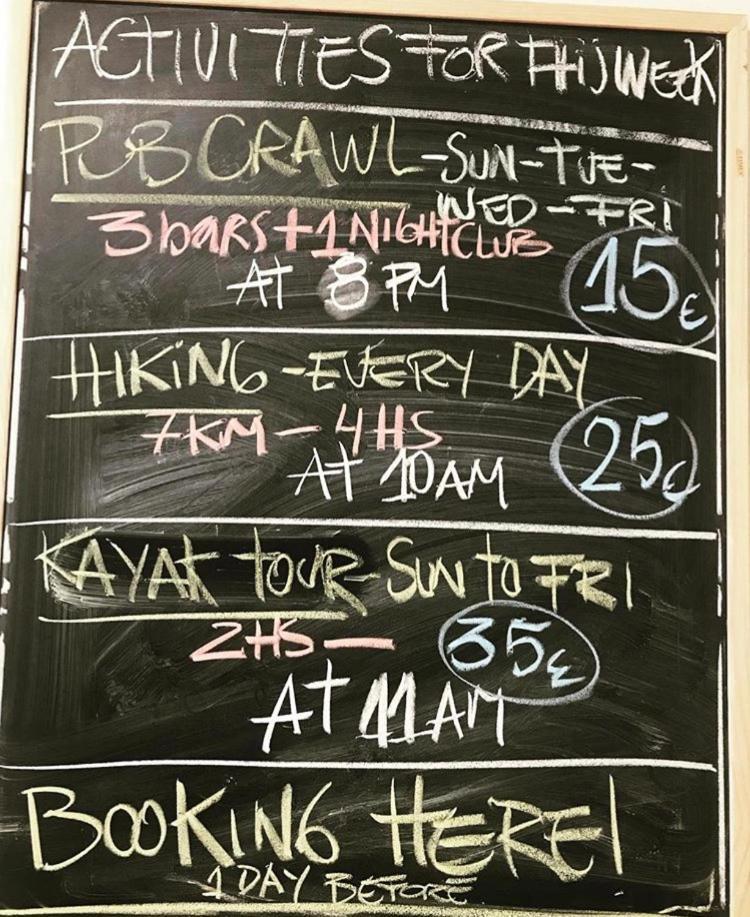 ACTIVITIES FOR THIS WEEK
PUB CRAWL - SUN - TUE -
WED - FRI
3 bARS + 1 NIGHTCLUB
AT 8 PM
15€
HIKiNG - EVERY DAY
7KM - 4HS
AT 10AM
25€
KAYAK TOUR - SUN to FRI
2HS -
35€
AT 11 AM
BOOKING HERE!
1 DAY BEFORE